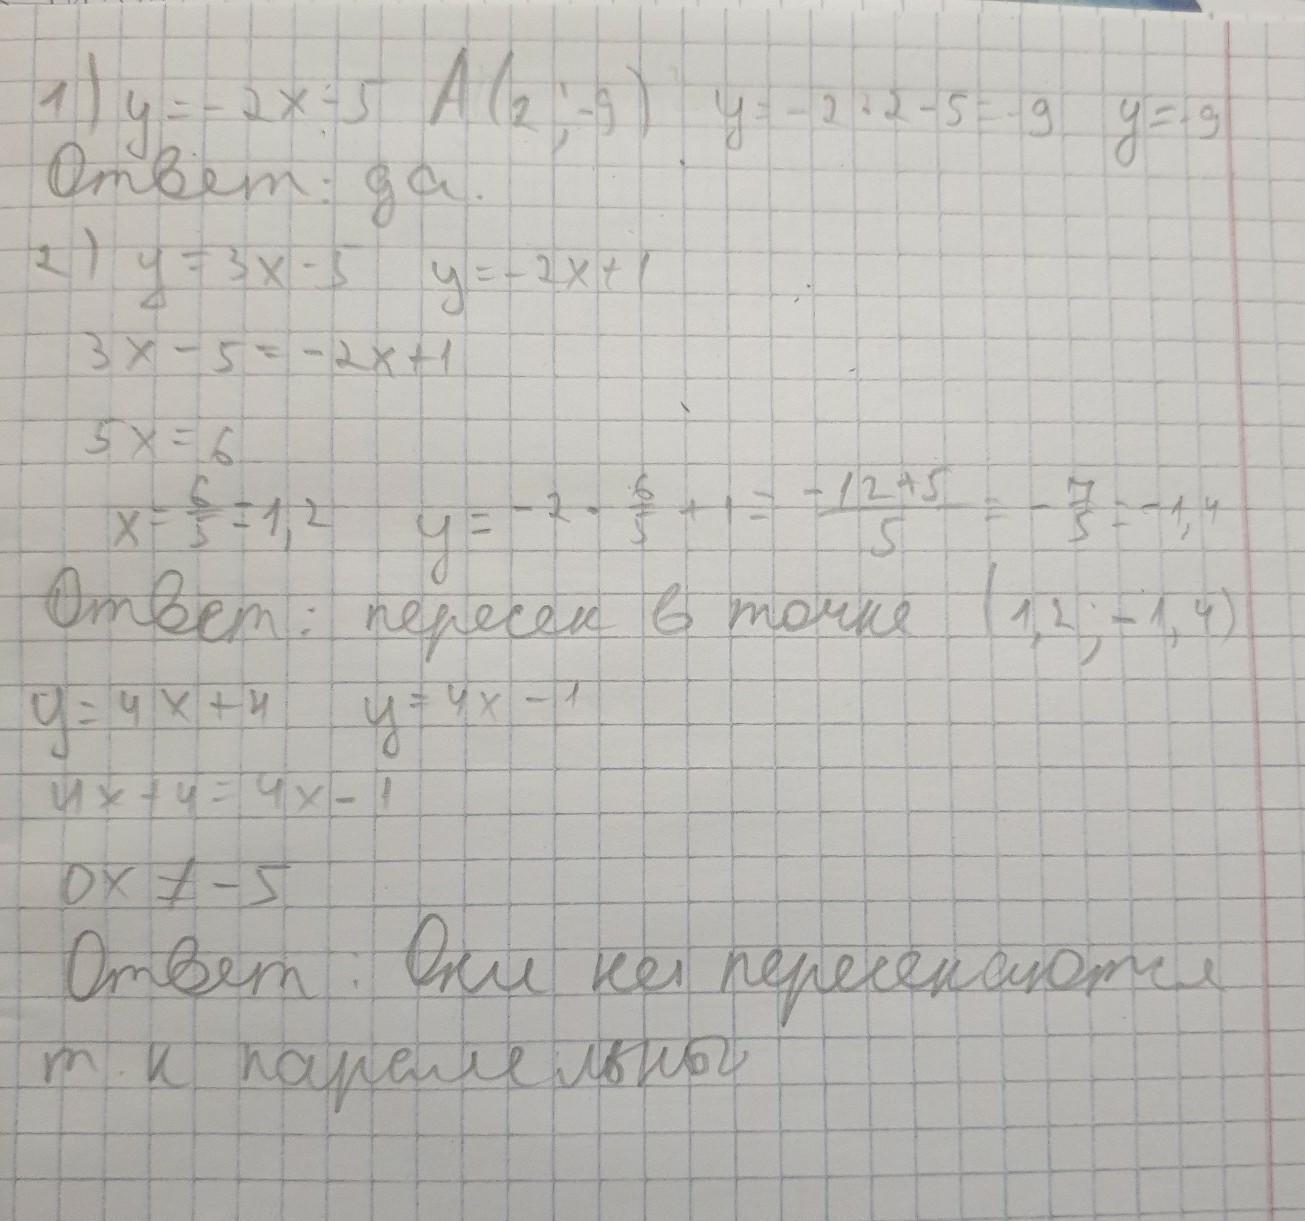 1) y = -2x-5 A(2;-9) y = -2·2-5=-9 y=-9
Ответ: да.
2) y = 3x-5 y=-2x+1
3x-5=-2x+1
5x=6
x=6/5=1,2 y=-2·6/5+1=(-12+5)/5=-7/5=-1,4
Ответ: пересек в точке (1,2;-1,4)
y=4x+4 y=4x-1
4x+4=4x-1
0x≠-5
Ответ: Они не пересекаются
т.к паралельны